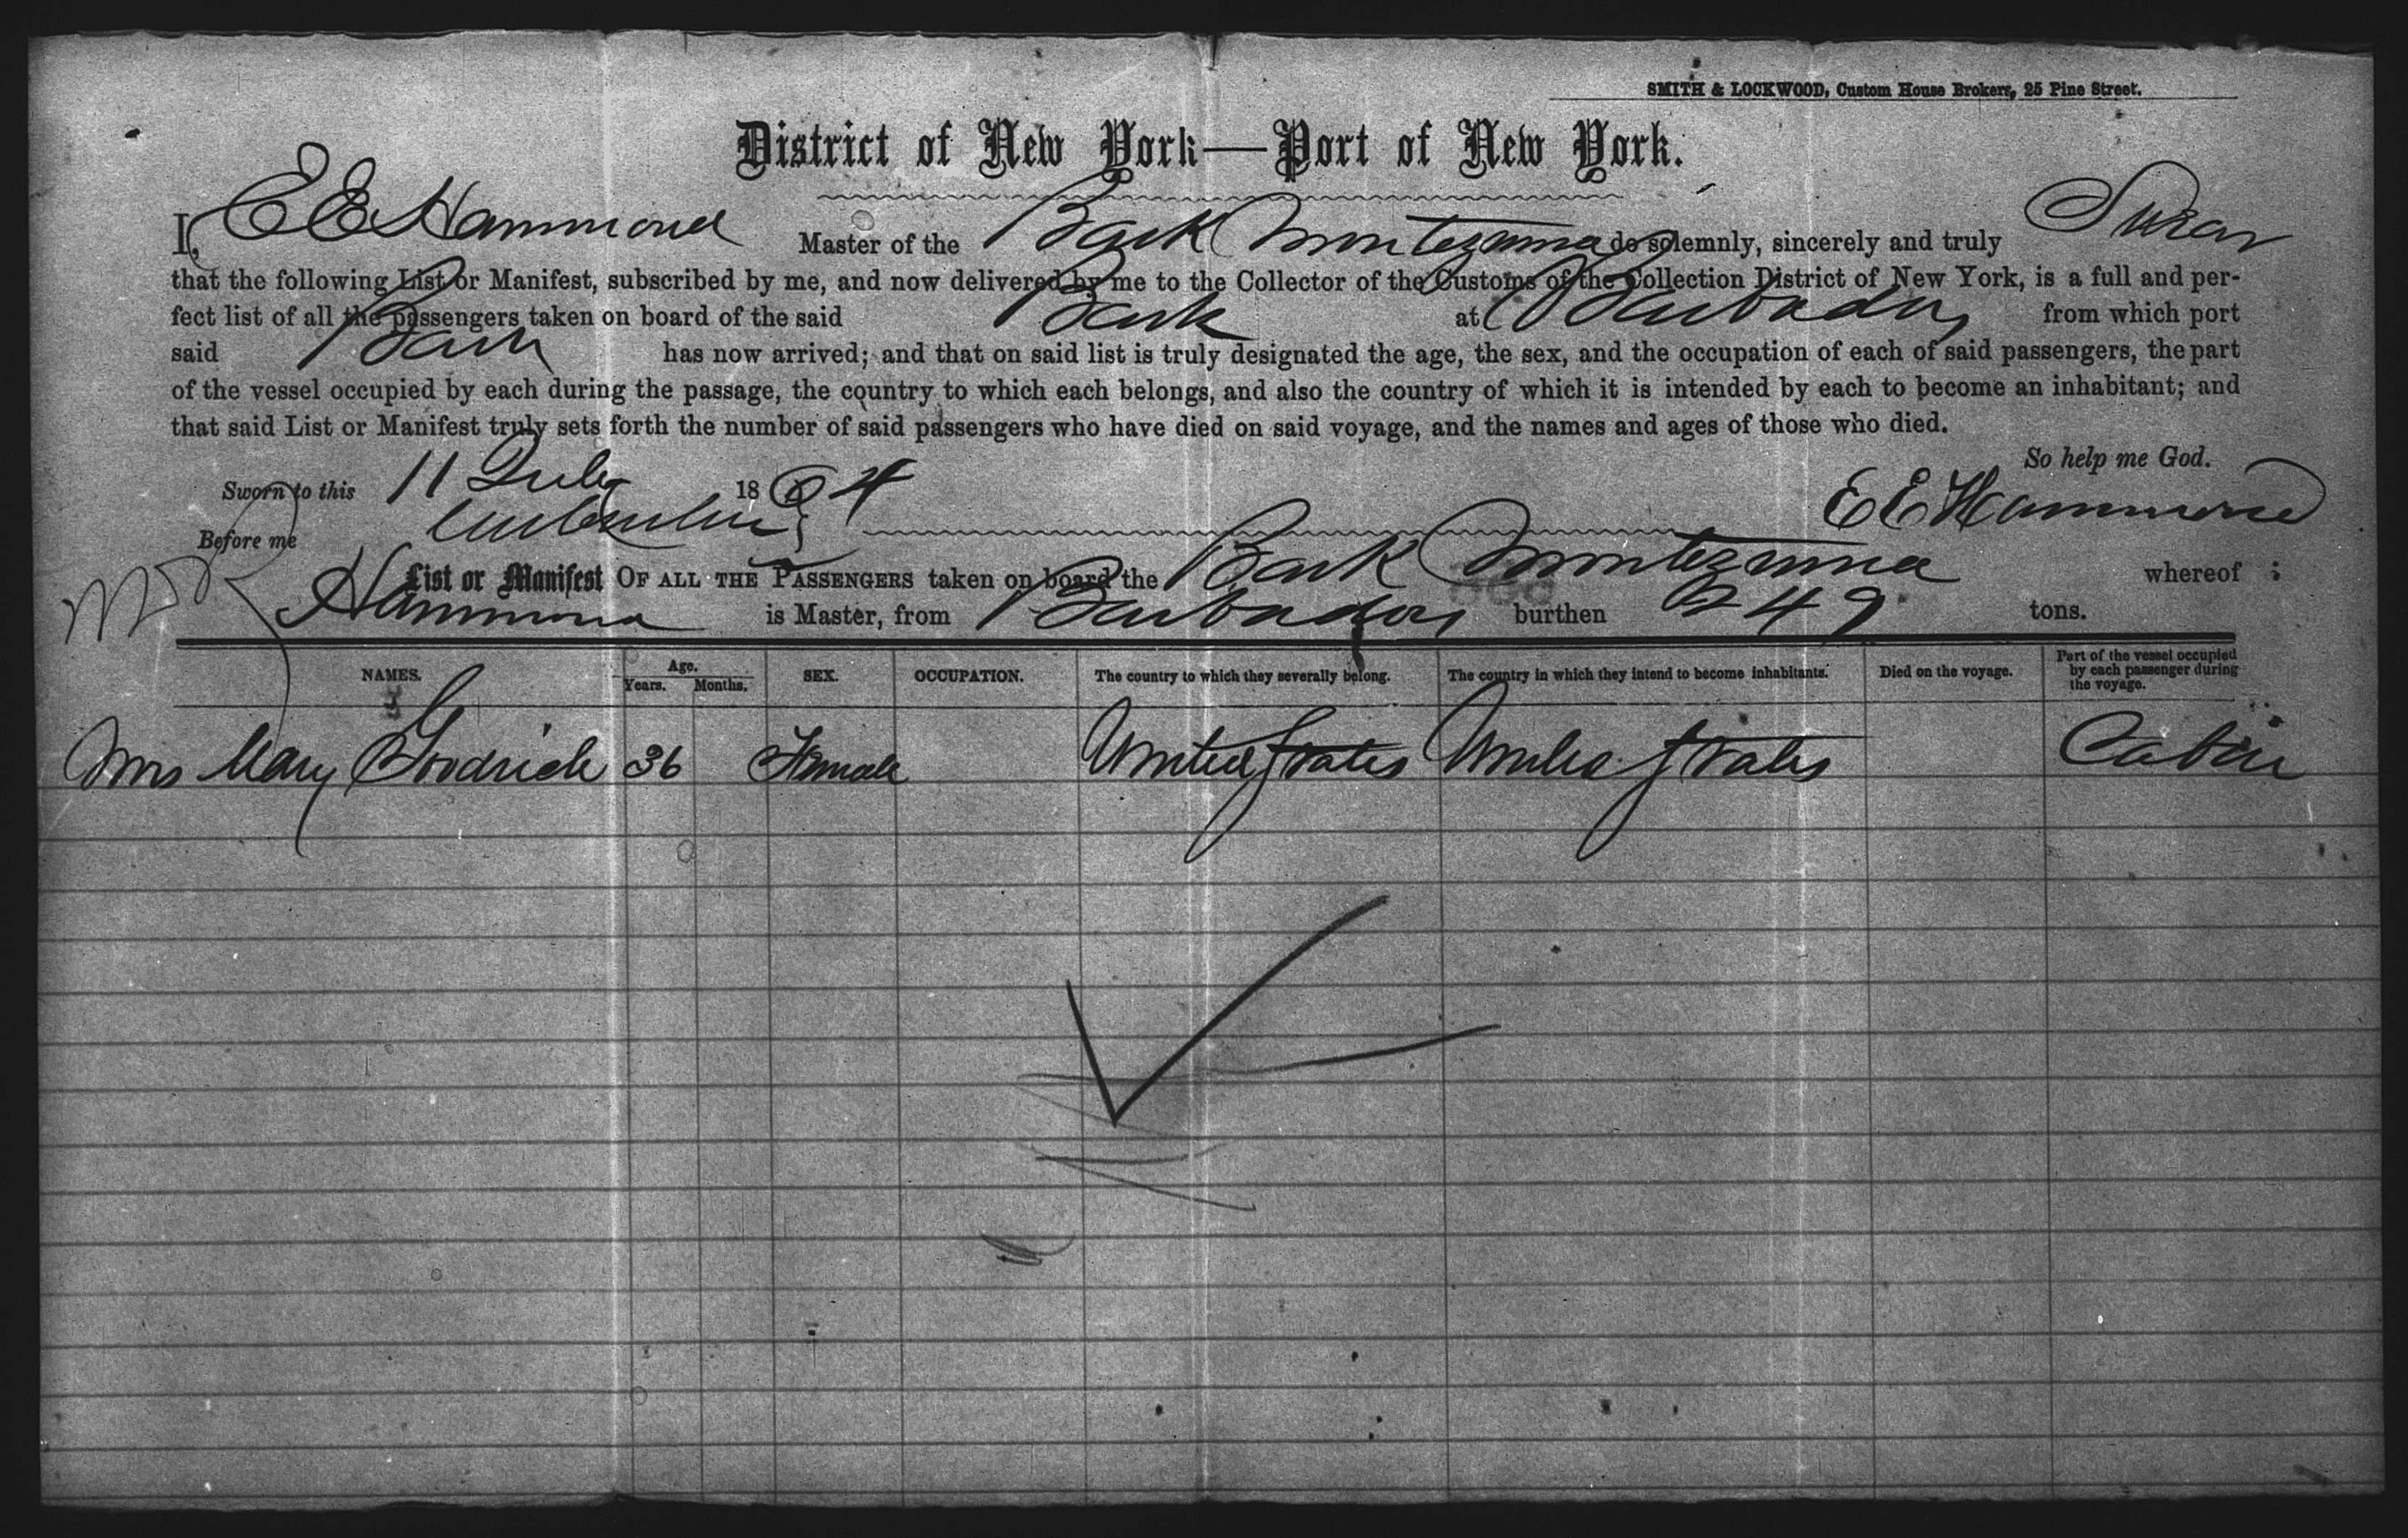 SMITH & LOCKWOOD, Custom House Brokers, 25 Pine Street.
District of New York—Port of New York.
I, E E Hammond Master of the Bark Montezuma do solemnly, sincerely and truly Swear
that the following List or Manifest, subscribed by me, and now delivered by me to the Collector of the Customs of the Collection District of New York, is a full and per-
fect list of all the passengers taken on board of the said Bark at Barbados from which port
said Bark has now arrived; and that on said list is truly designated the age, the sex, and the occupation of each of said passengers, the part
of the vessel occupied by each during the passage, the country to which each belongs, and also the country of which it is intended by each to become an inhabitant; and
that said List or Manifest truly sets forth the number of said passengers who have died on said voyage, and the names and ages of those who died.
So help me God.
Sworn to this 11 July 1864
E E Hammond
Before me
List or Manifest OF ALL THE PASSENGERS taken on board the Bark Montezuma whereof
Hammond is Master, from Barbados burthen 249 tons.
NAMES. Age. Years. Months. SEX. OCCUPATION. The country to which they severally belong. The country in which they intend to become inhabitants. Died on the voyage. Part of the vessel occupied by each passenger during the voyage.
Mrs Mary Goodrich 36 Female United States United States Cabin